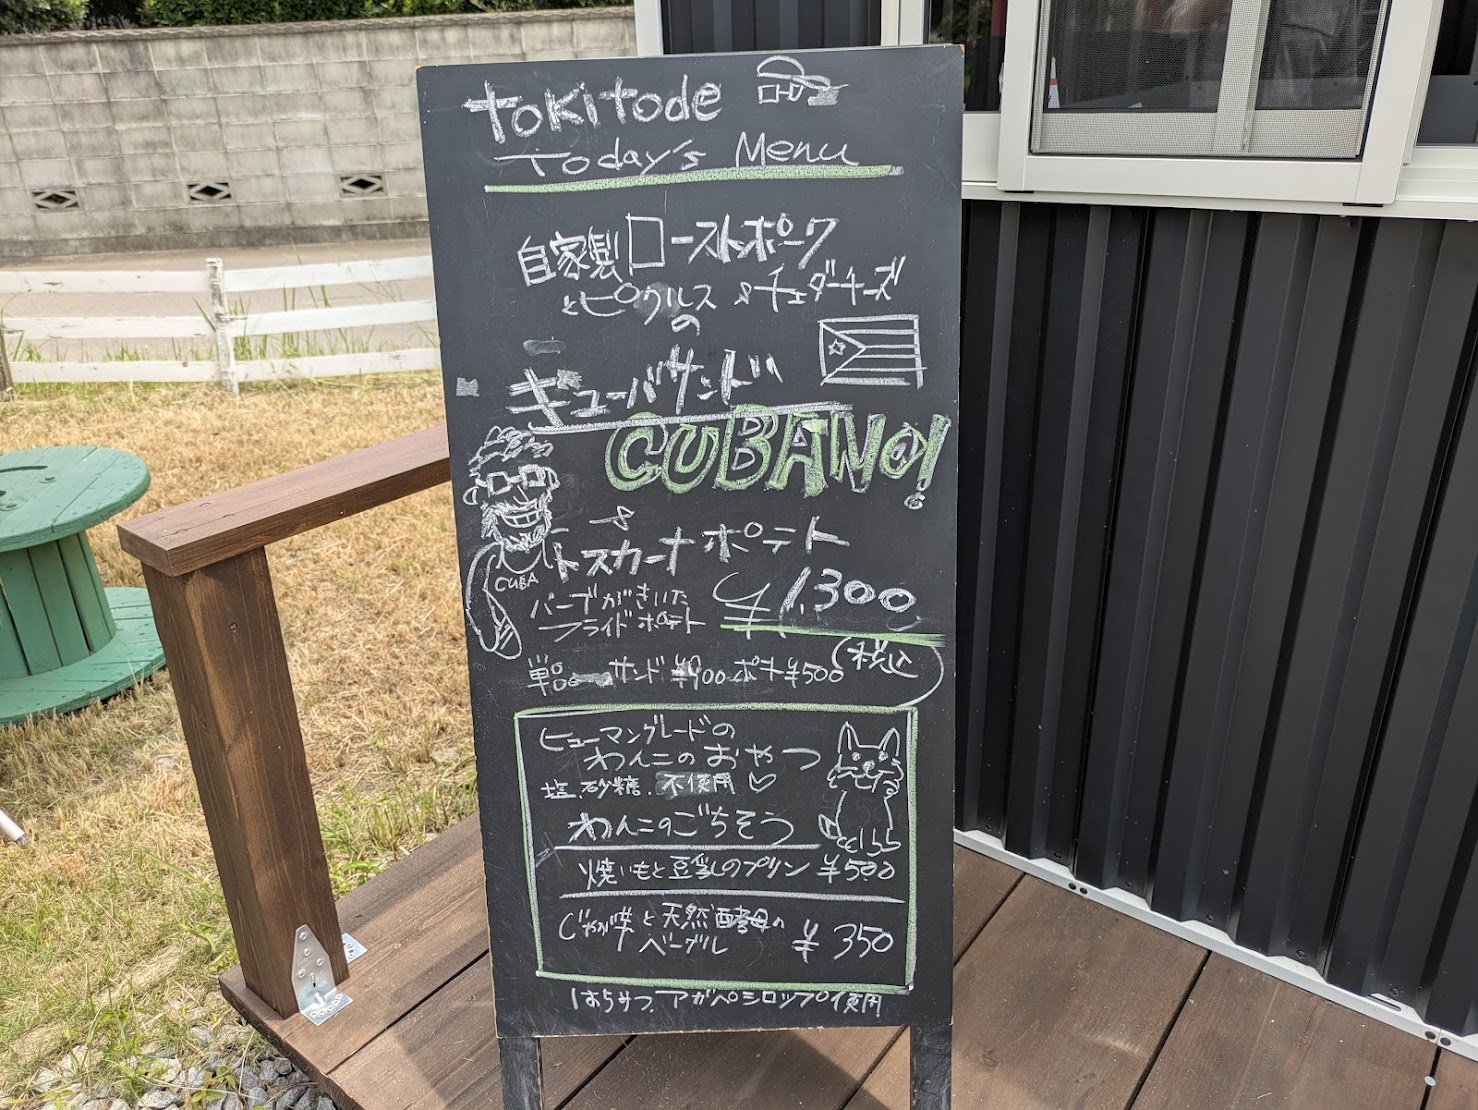 tokitode
Today's Menu
自家製ローストポーク
とピクルス &チェダーチーズ
の
キューバサンド
CUBANO!
&
トスカーナ ポテト
CUBA
ハーブがきいた
フライドポテト
¥1,300
(税込)
単品 サンド ¥900 ポテ¥500
ヒューマングレードの
わんこのおやつ
塩、砂糖、不使用♡
わんこのごちそう
焼いもと豆乳のプリン ¥500
じゃが芋と天然酵母の
ベーグル ¥350
はちみつ、アガペシロップ使用